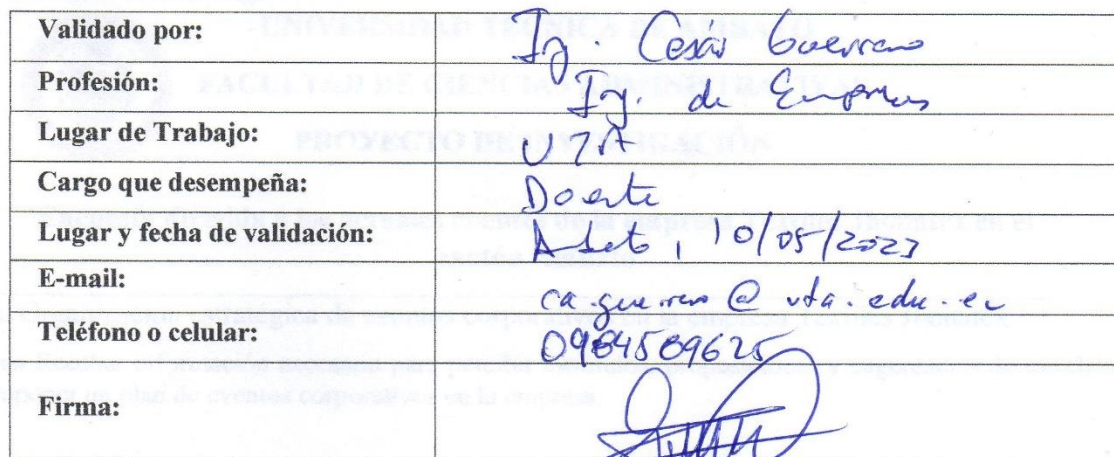 Validado por: Ing. Cesar Guerrero
Profesión: Ing. de Empresas
Lugar de Trabajo: UTA
Cargo que desempeña: Docente
Lugar y fecha de validación: Ambato, 10/05/2023
E-mail: ca.guerrero@uta.edu.ec
Teléfono o celular: 0984589625
Firma: